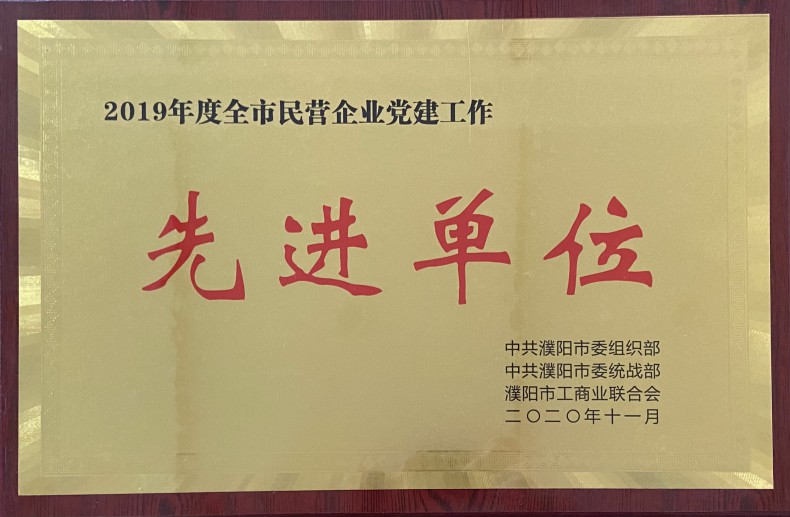 2019年度全市民营企业党建工作
先进单位
中共濮阳市委组织部
中共濮阳市委统战部
濮阳市工商业联合会
二〇二〇年十一月